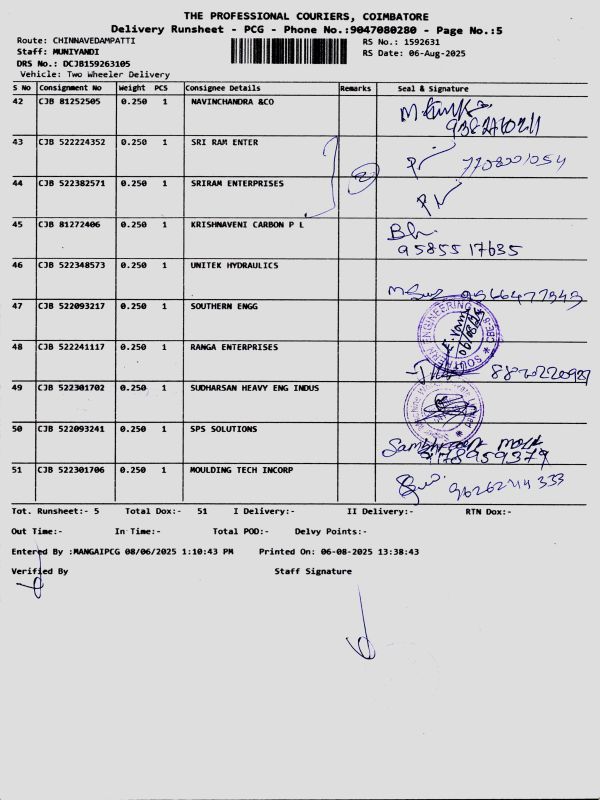 THE PROFESSIONAL COURIERS, COIMBATORE
Delivery Runsheet - PCG - Phone No.:9047080280 - Page No.:5
Route: CHINNAVEDAMPATTI
RS No.: 1592631
Staff: MUNIYANDI
RS Date: 06-Aug-2025
DRS No.: DCJB159263105
Vehicle: Two Wheeler Delivery
S No Consignment No Weight PCS Consignee Details Remarks Seal & Signature
42 CJB 81252505 0.250 1 NAVINCHANDRA &CO
43 CJB 522224352 0.250 1 SRI RAM ENTER 7708001054
44 CJB 522382571 0.250 1 SRIRAM ENTERPRISES
45 CJB 81272406 0.250 1 KRISHNAVENI CARBON P L
9585517635
46 CJB 522348573 0.250 1 UNITEK HYDRAULICS
47 CJB 522093217 0.250 1 SOUTHERN ENGG
48 CJB 522241117 0.250 1 RANGA ENTERPRISES
49 CJB 522301702 0.250 1 SUDHARSAN HEAVY ENG INDUS
50 CJB 522093241 0.250 1 SPS SOLUTIONS
51 CJB 522301706 0.250 1 MOULDING TECH INCORP
Tot. Runsheet:- 5 Total Dox:- 51 I Delivery:- II Delivery:- RTN Dox:-
Out Time:- In Time:- Total POD:- Delvy Points:-
Entered By :MANGAIPCG 08/06/2025 1:10:43 PM Printed On: 06-08-2025 13:38:43
Verified By Staff Signature